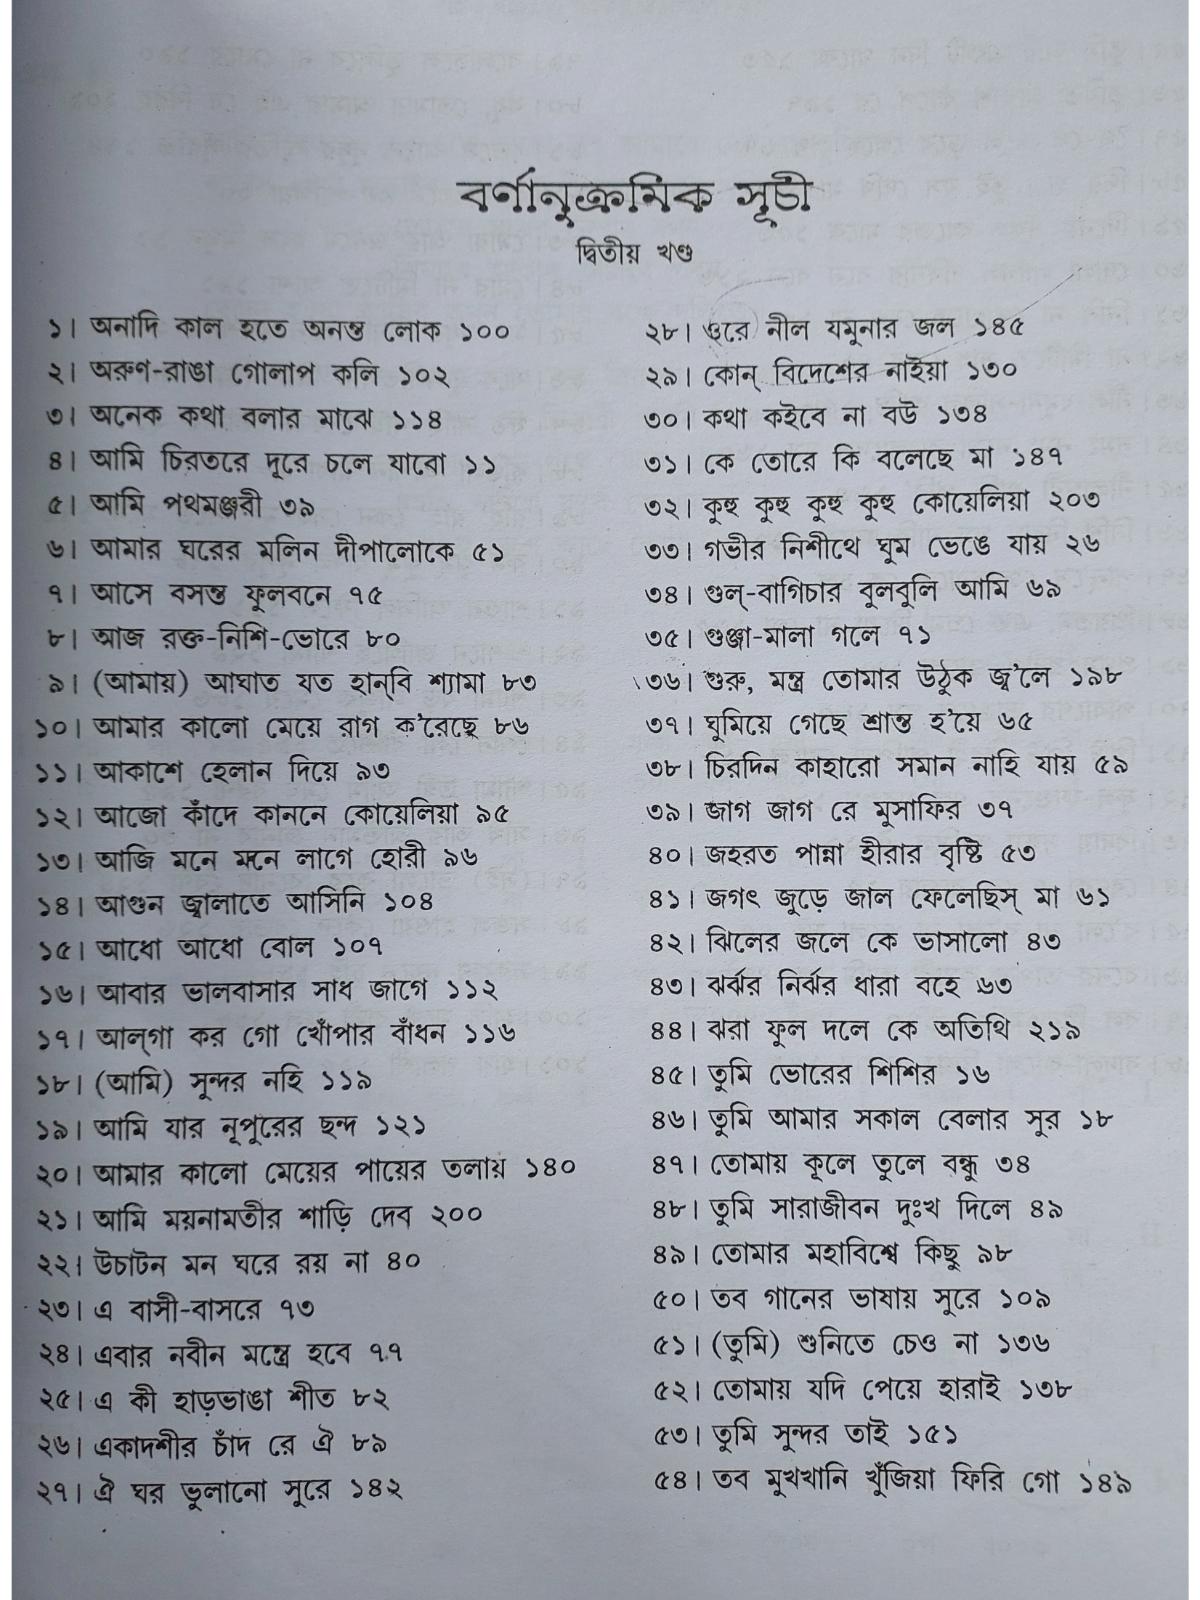 বর্ণানুক্রমিক সূচী
দ্বিতীয় খণ্ড
১। অনাদি কাল হতে অনন্ত লোক ১০০
২। অরুণ-রাঙা গোলাপ কলি ১০২
৩। অনেক কথা বলার মাঝে ১১৪
৪। আমি চিরতরে দূরে চলে যাবো ১১
৫। আমি পথমঞ্জরী ৩৯
৬। আমার ঘরের মলিন দীপালোকে ৫১
৭। আসে বসন্ত ফুলবনে ৭৫
৮। আজ রক্ত-নিশি-ভোরে ৮০
৯। (আমায়) আঘাত যত হান্‌বি শ্যামা ৮৩
১০। আমার কালো মেয়ে রাগ ক'রেছে ৮৬
১১। আকাশে হেলান দিয়ে ৯৩
১২। আজো কাঁদে কাননে কোয়েলিয়া ৯৫
১৩। আজি মনে মনে লাগে হোরী ৯৬
১৪। আগুন জ্বালাতে আসিনি ১০৪
১৫। আধো আধো বোল ১০৭
১৬। আবার ভালবাসার সাধ জাগে ১১২
১৭। আল্‌গা কর গো খোঁপার বাঁধন ১১৬
১৮। (আমি) সুন্দর নহি ১১৯
১৯। আমি যার নূপুরের ছন্দ ১২১
২০। আমার কালো মেয়ের পায়ের তলায় ১৪০
২১। আমি ময়নামতীর শাড়ি দেব ২০০
২২। উচাটন মন ঘরে রয় না ৪০
২৩। এ বাসী-বাসরে ৭৩
২৪। এবার নবীন মন্ত্রে হবে ৭৭
২৫। এ কী হাড়ভাঙা শীত ৮২
২৬। একাদশীর চাঁদ রে ঐ ৮৯
২৭। ঐ ঘর ভুলানো সুরে ১৪২
২৮। ওরে নীল যমুনার জল ১৪৫
২৯। কোন্ বিদেশের নাইয়া ১৩০
৩০। কথা কইবে না বউ ১৩৪
৩১। কে তোরে কি বলেছে মা ১৪৭
৩২। কুহু কুহু কুহু কুহু কোয়েলিয়া ২০৩
৩৩। গভীর নিশীথে ঘুম ভেঙে যায় ২৬
৩৪। গুল্-বাগিচার বুলবুলি আমি ৬৯
৩৫। গুঞ্জা-মালা গলে ৭১
৩৬। গুরু, মন্ত্র তোমার উঠুক জ্ব'লে ১৯৮
৩৭। ঘুমিয়ে গেছে শ্রান্ত হ'য়ে ৬৫
৩৮। চিরদিন কাহারো সমান নাহি যায় ৫৯
৩৯। জাগ জাগ রে মুসাফির ৩৭
৪০। জহরত পান্না হীরার বৃষ্টি ৫৩
৪১। জগৎ জুড়ে জাল ফেলেছিস্ মা ৬১
৪২। ঝিলের জলে কে ভাসালো ৪৩
৪৩। ঝর্ঝর নির্ঝর ধারা বহে ৬৩
৪৪। ঝরা ফুল দলে কে অতিথি ২১৯
৪৫। তুমি ভোরের শিশির ১৬
৪৬। তুমি আমার সকাল বেলার সুর ১৮
৪৭। তোমায় কূলে তুলে বন্ধু ৩৪
৪৮। তুমি সারাজীবন দুঃখ দিলে ৪৯
৪৯। তোমার মহাবিশ্বে কিছু ৯৮
৫০। তব গানের ভাষায় সুরে ১০৯
৫১। (তুমি) শুনিতে চেও না ১৩৬
৫২। তোমায় যদি পেয়ে হারাই ১৩৮
৫৩। তুমি সুন্দর তাই ১৫১
৫৪। তব মুখখানি খুঁজিয়া ফিরি গো ১৪৯